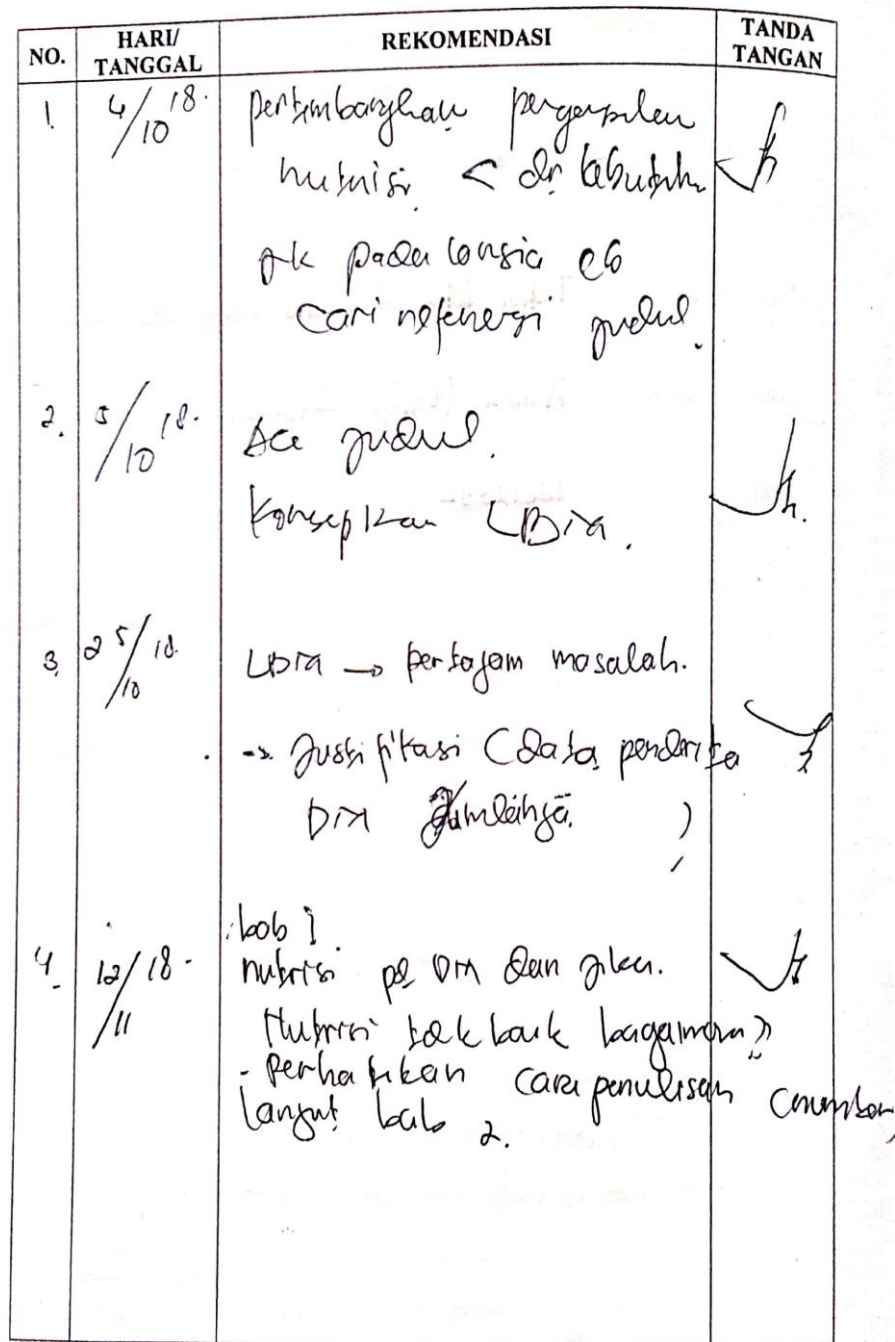 NO. HARI/ TANGGAL REKOMENDASI TANDA TANGAN
1. 4/10 18. pertimbangkan
nutrisi < dr
pada lansia
cari judul.
2. 5/10 18. Acc judul.
Konsepkan LBM.
3. 25/10 18. LBM → pertajam masalah.
-> Justifikasi (data penderita
DM Jumlahnya. )
bab 1
4. 12/11 18. nutrisi pd DM dan jika.
Nutrisi tak baik bagaimana?
- Perhatikan cara penulisan
Lanjut bab 2.